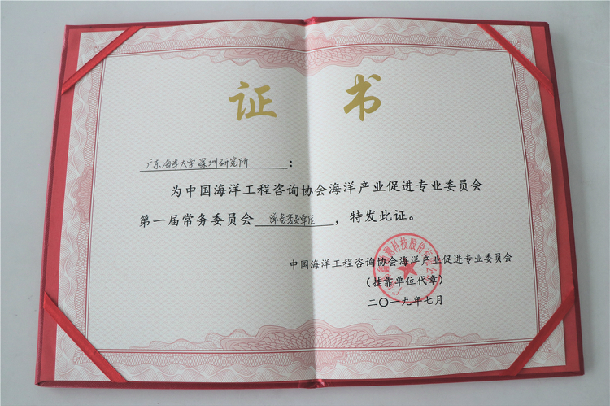 证书
广东海洋大学深圳研究院:
为中国海洋工程咨询协会海洋产业促进专业委员会
第一届常务委员会 ，特发此证。
中国海洋工程咨询协会海洋产业促进专业委员会
(挂靠单位代章)
二〇一九年七月